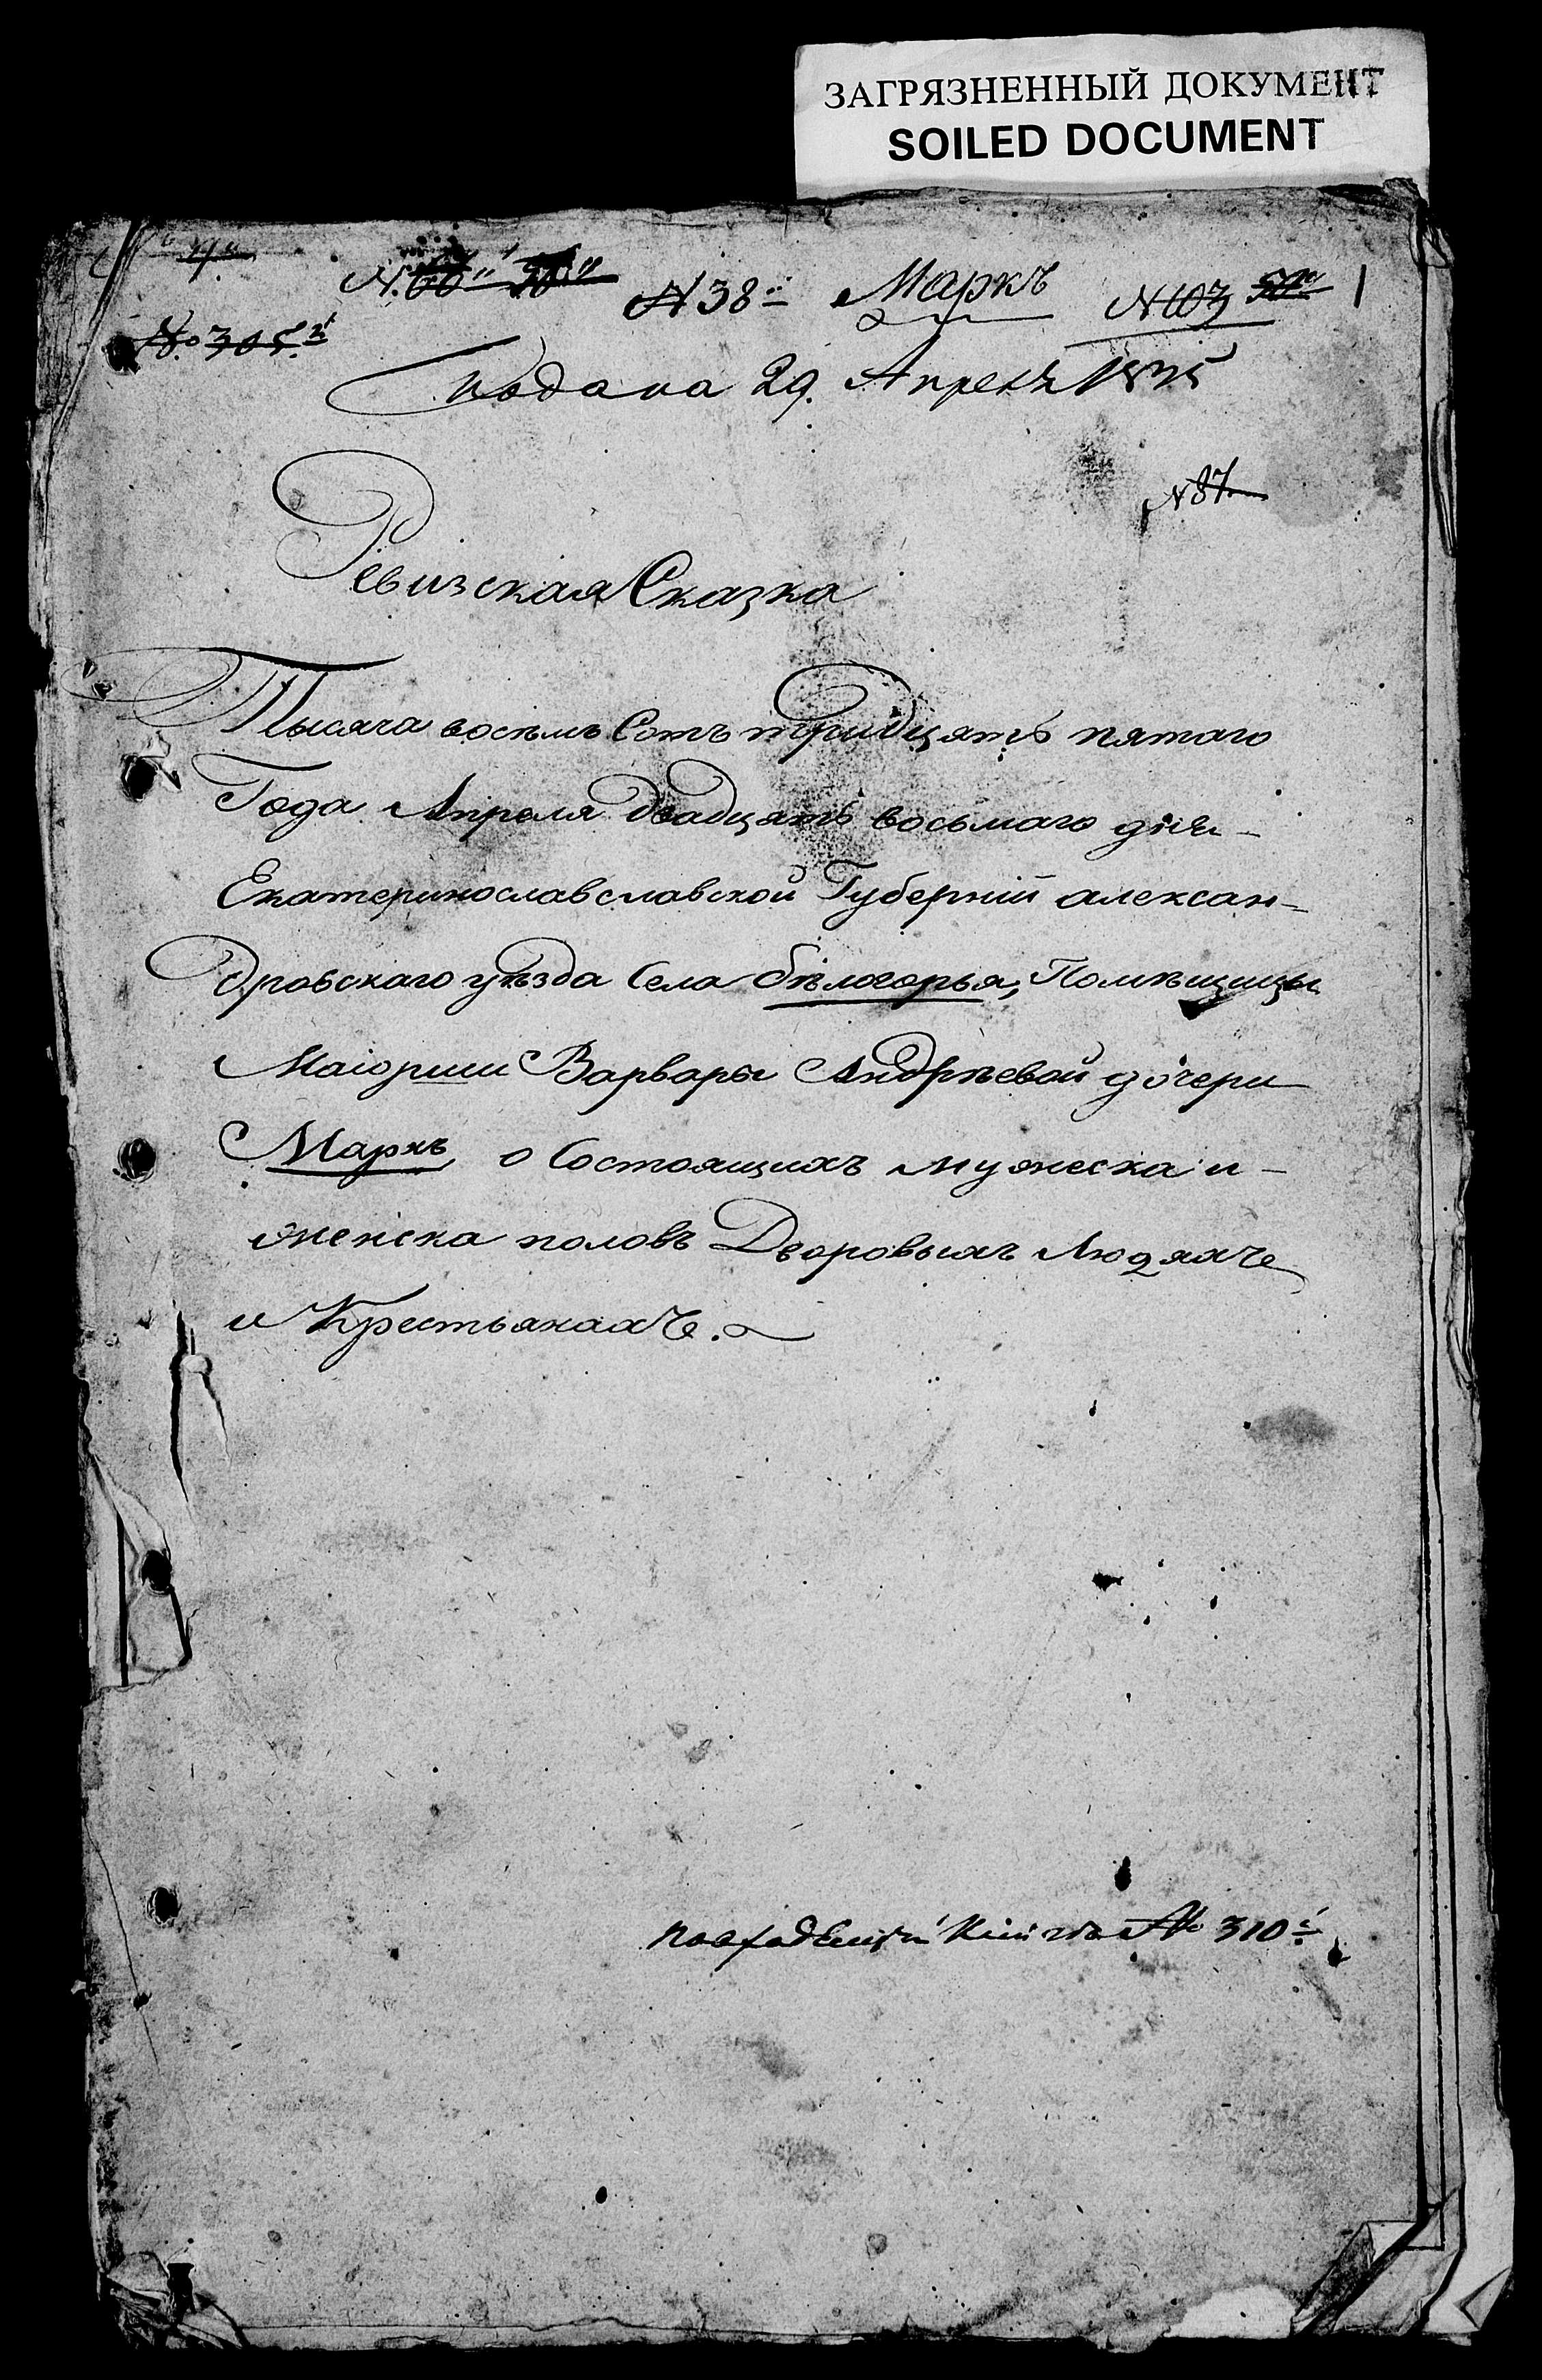 ЗАГРЯЗНЕННЫЙ ДОКУМЕНТ
SOILED DOCUMENT
N 38 Маркъ N 103 1
№ 305
Подана 29. Апреля 1835
N 87
Ревизская Сказка
Тысяча восемь Сотъ тридцать пятаго
Года Апреля двадцать восьмаго дня
Екатеринославславской Губерніи алексан-
дровскаго уѣзда Села бѣлогорья, Помѣщицы
Маіорши Варвары Андрѣевой дочери
Маркъ, о Состоящихъ мужеска и
женска половъ Дворовыхъ Людяхъ
и Крестьянахъ.
№ 310